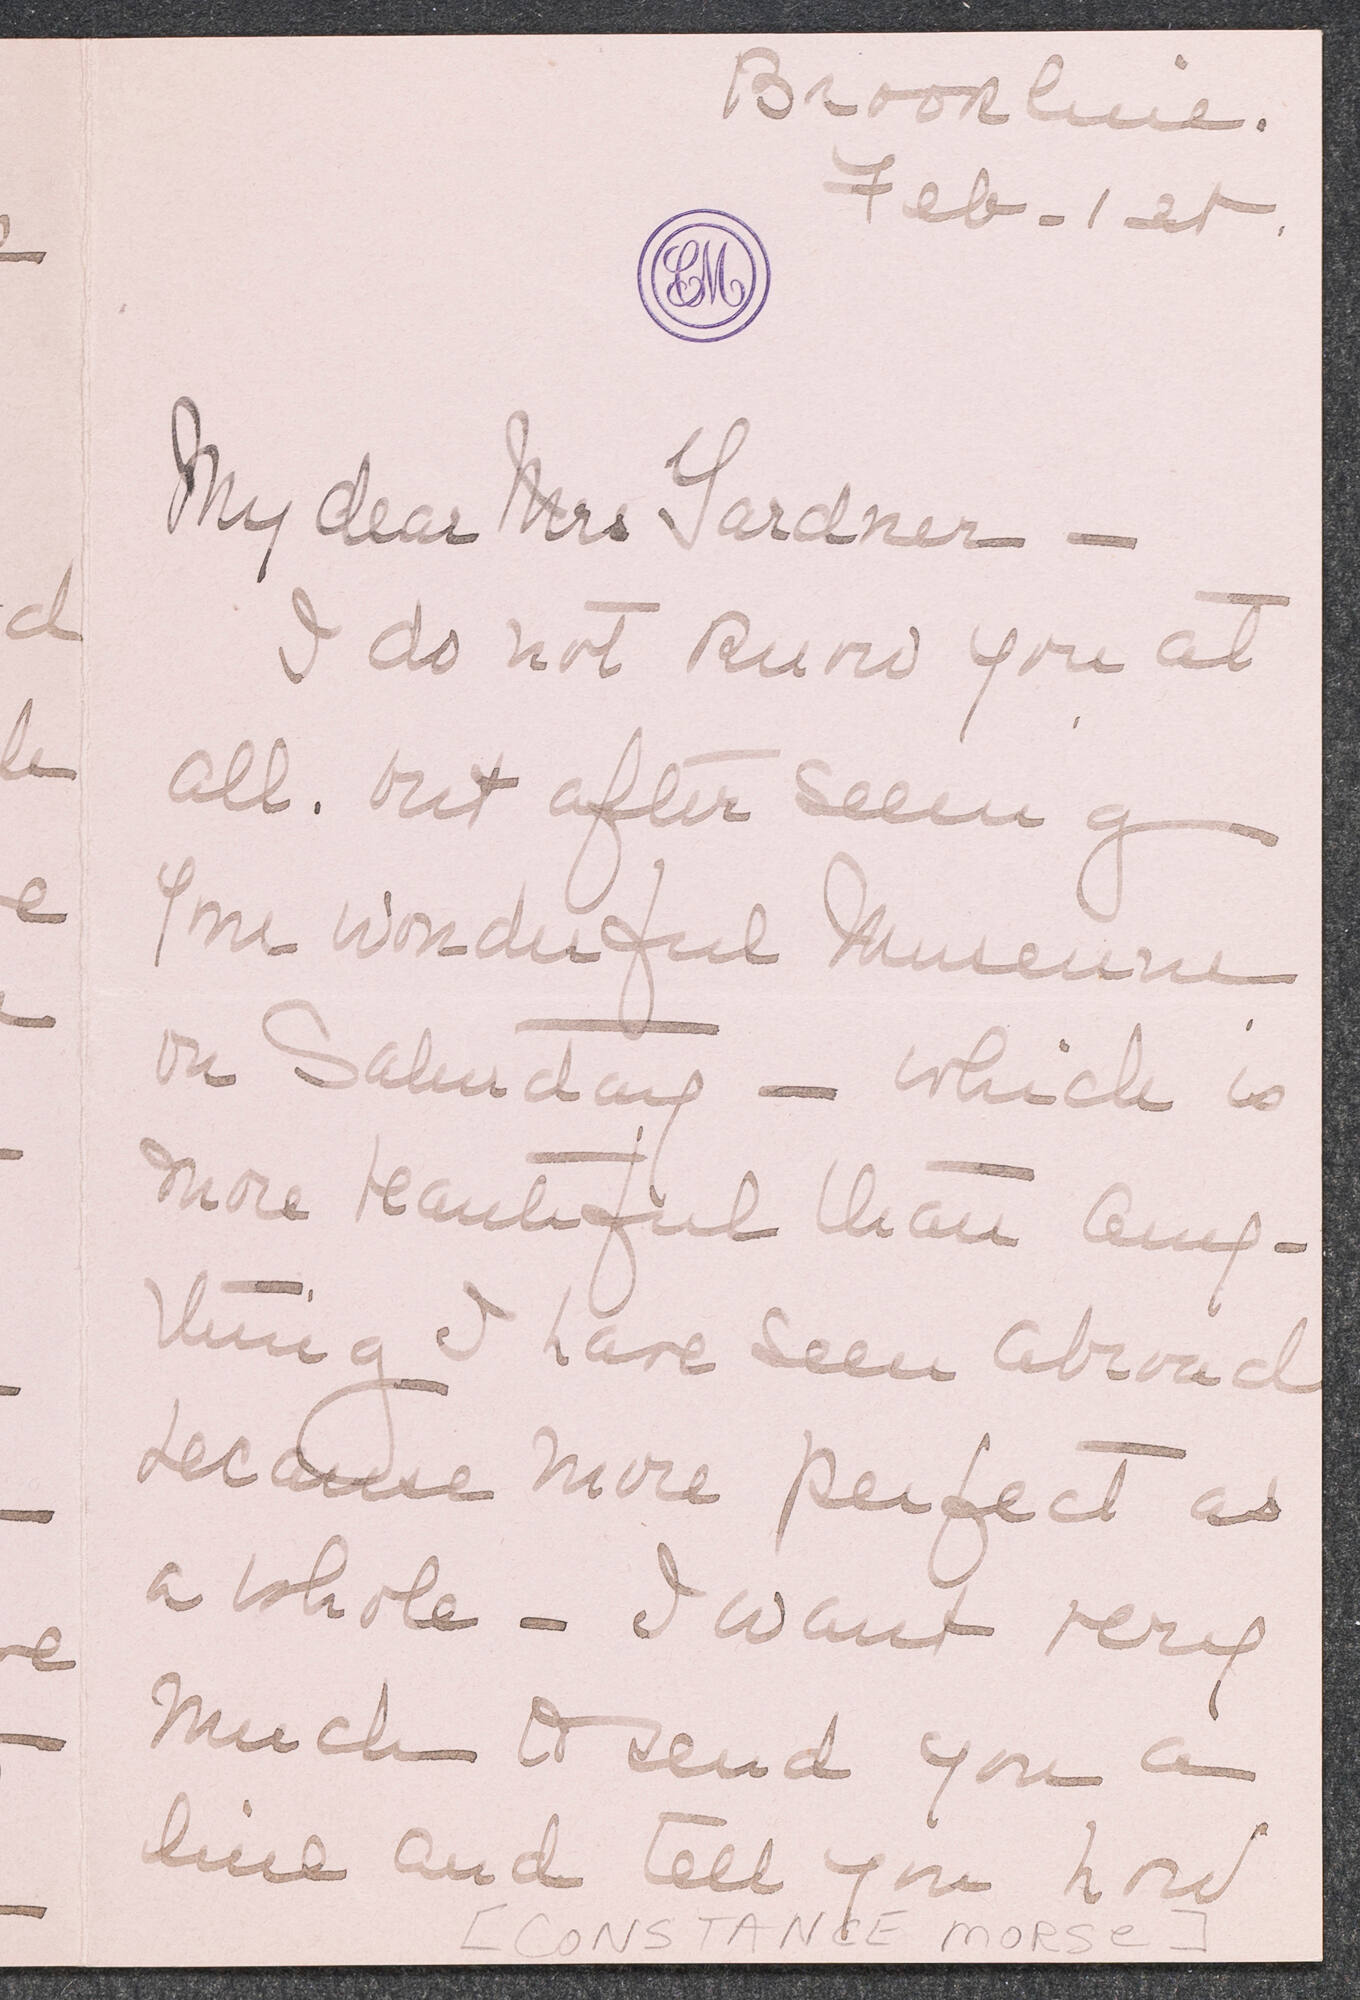 Brookline.
Feb-1st.
CM
My dear Mrs Gardner —
I do not know you at
all. but after seeing
your wonderful Museum
on Saturday — which is
more beautiful than any-
thing I have seen abroad
because more perfect as
a whole — I want very
much to send you a
line and tell you how
[CONSTANCE MORSE]